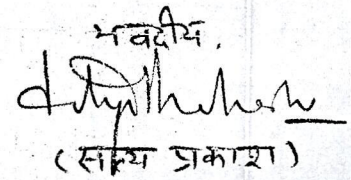 भवदीय,
(सत्य प्रकाश)